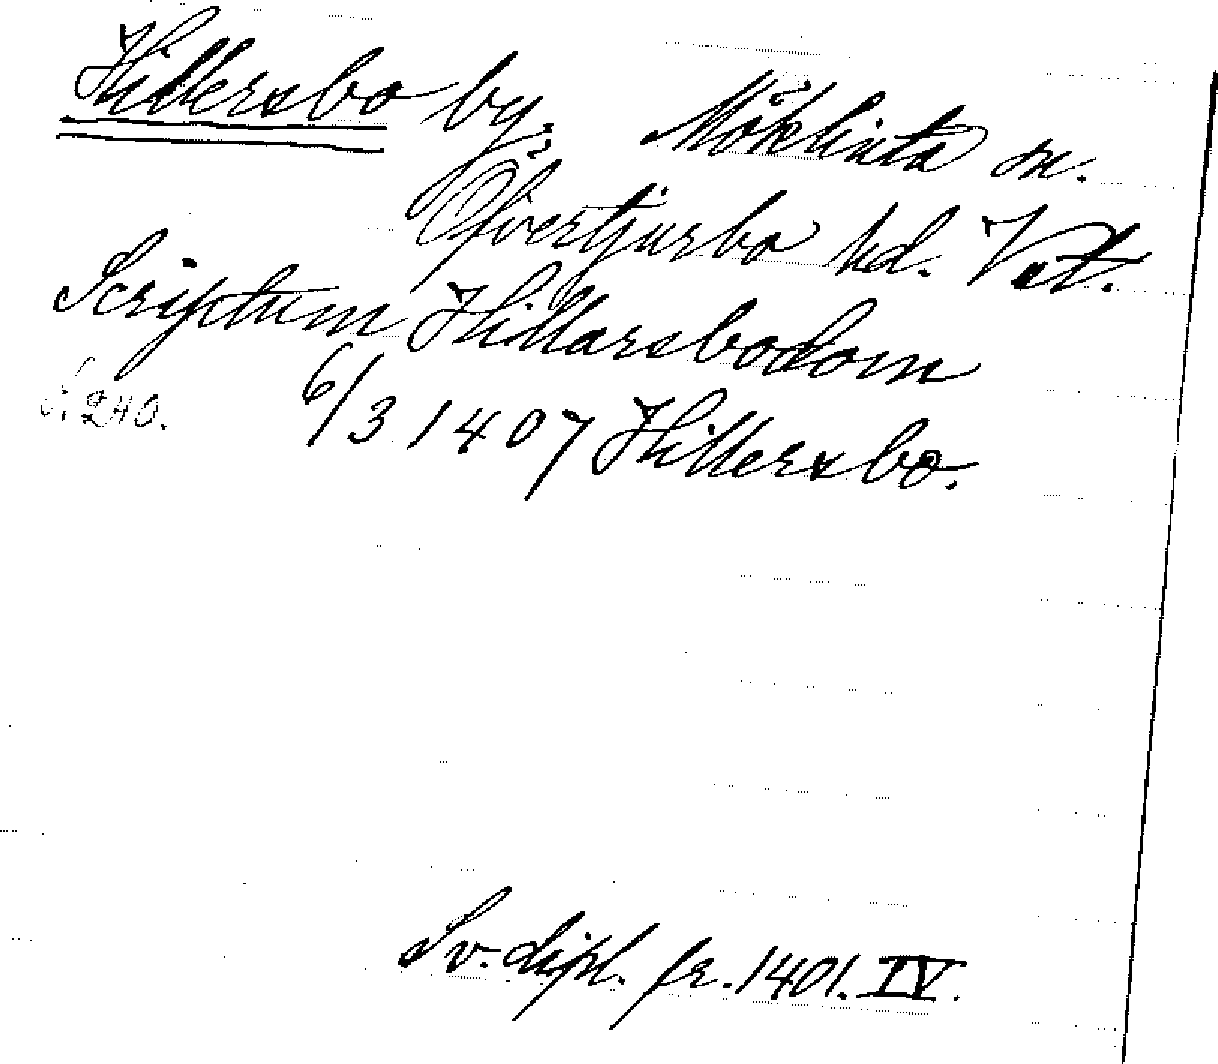 Hillersbo by, Möklinta sn.
Öfvertjurbo hd. Vst.
Scriptum Hillarsbodom
s. 240. 6/3 1407 Hillersbo.
Sv. dipl. fr. 1401. IV.